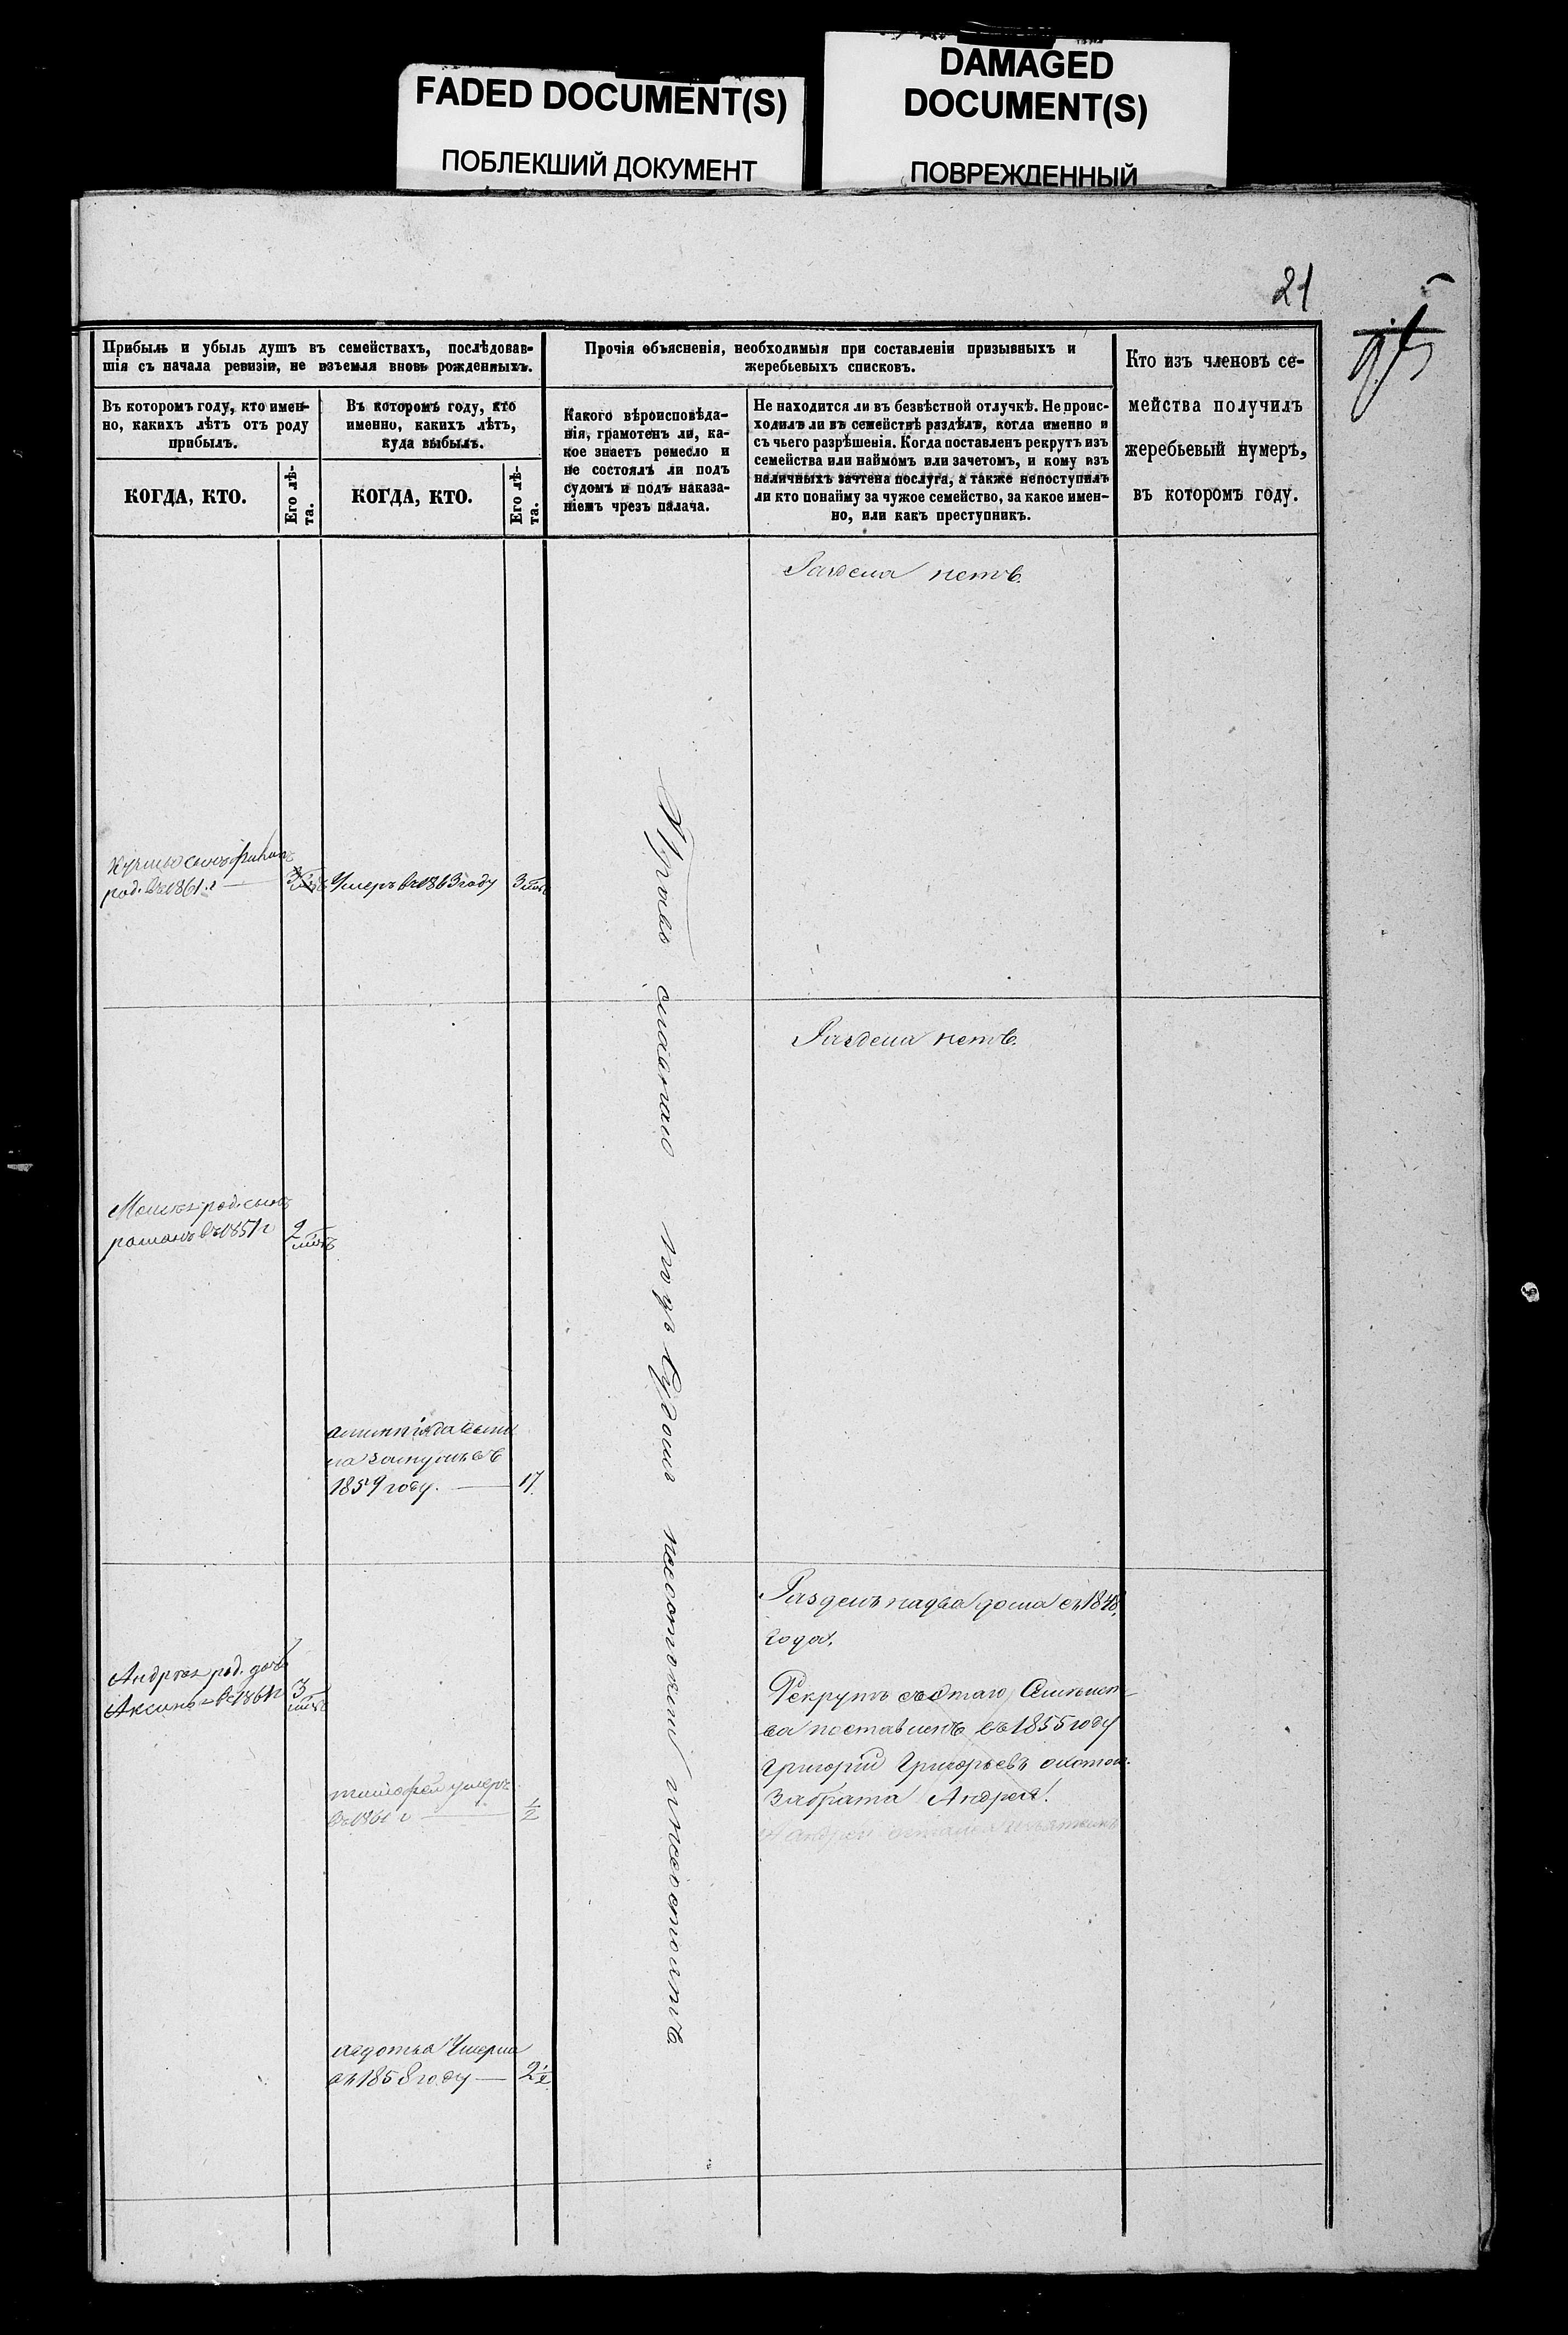 FADED DOCUMENT(S)
ПОБЛЕКШИЙ ДОКУМЕНТ
DAMAGED
DOCUMENT(S)
ПОВРЕЖДЕННЫЙ
21
Прибыль и убыль душъ въ семействахъ, послѣдовав-
шія съ начала ревизіи, не изъемля вновь рожденныхъ.
Въ которомъ году, кто имен-
но, какихъ лѣтъ отъ роду
прибылъ.
КОГДА, КТО.
Его лѣ-
та.
Въ которомъ году, кто
именно, какихъ лѣтъ,
куда выбылъ.
КОГДА, КТО.
Его лѣ-
та.
Прочія объясненія, необходимыя при составленіи призывныхъ и
жеребьевыхъ списковъ.
Какого вѣроисповѣда-
нія, грамотенъ ли, ка-
кое знаетъ ремесло и
не состоялъ ли подъ
судомъ и подъ наказа-
ніемъ чрезъ палача.
Не находится ли въ безвѣстной отлучкѣ. Не проис-
ходилъ ли въ семействѣ раздѣлъ, когда именно и
съ чьего разрѣшенія. Когда поставленъ рекрутъ изъ
семейства или наймомъ или зачетомъ, и кому изъ
наличныхъ зачтена послуга, а также непоступилъ
ли кто понайму за чужое семейство, за какое имен-
но, или какъ преступникъ.
Кто изъ членовъ се-
мейства получилъ
жеребьевый нумеръ,
въ которомъ году.
Раздела нетъ.
род. въ 1861. г
Умеръ въ 1863 году 3
Раздела нетъ.
род. сынъ
романъ въ 1851 г 2
1859 году. 17.
Разделъ надва дома съ 1848.
года.
Андрея род. дочь
Аксинья въ 1861 г 3
Рекрутъ съэтаго Семейст-
ва поставленъ въ 1855 году
Григорий Григорьевъ охотой
забрата Андрея.
тимофей умеръ
въ 1861 г 1/2
Андрей
авдотья Умерла
въ 1858 году 2 1/2
православно подъ судомъ несостояли и несостоятъ